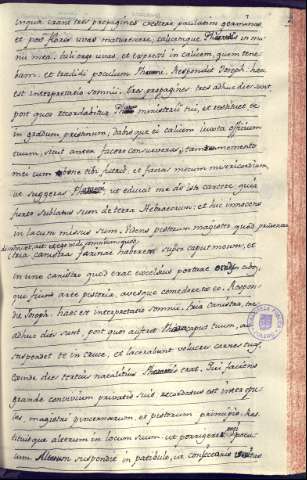 in qua erant tres propagines crescere paulatim in gemmas
et post flores uvas maturescere, calicemque Pharaonis in ma
nu mea: tuli ergo uvas, et expressi in calicem, quem tene
bam, et tradidi poculum Pharaoni. Respondit Ioseph: haec
est interpretatio somnii. tres propagines tres adhuc dies sunt,
post quos recordabitur Pharao ministerii tui, et restituet te
in gradum pristinum, dabisque ei calicem iuxta officium
tuum, sicut antea facere consueveras, tantum memento
mei cum bene tibi fuerit, et facias mecum misericordiam
ut suggeras Pharaoni ut educat me de isto carcere, quia
furto sublatus sum de terra Hebraeorum, et hic innocens
in lacum missus sum. Videns pistorum magister quod prudenter
somnium
tria canistra farinae haberem super caput meum, et
in uno canistro quod erat excelsius portare cibos,
qui fiunt arte pistoria, avesque comedere ex eo. Respon
dit Ioseph: haec est interpretatio somnii. tria canistra, tres
adhuc dies sunt, post quos auferet Pharao caput tuum, ac
suspendet te in cruce, et lacerabunt volucres carnes tuas.
exinde dies tertius natalitius Pharaonis erat. Qui faciens
grande convivium pueris suis recordatus est inter epu
las magistri pincernarum, et pistorum principis. Res
tituitque alterum in locum suum ut porrigeret pocu
lum. Alterum suspendit in patibulo, ut coniectoris veritas